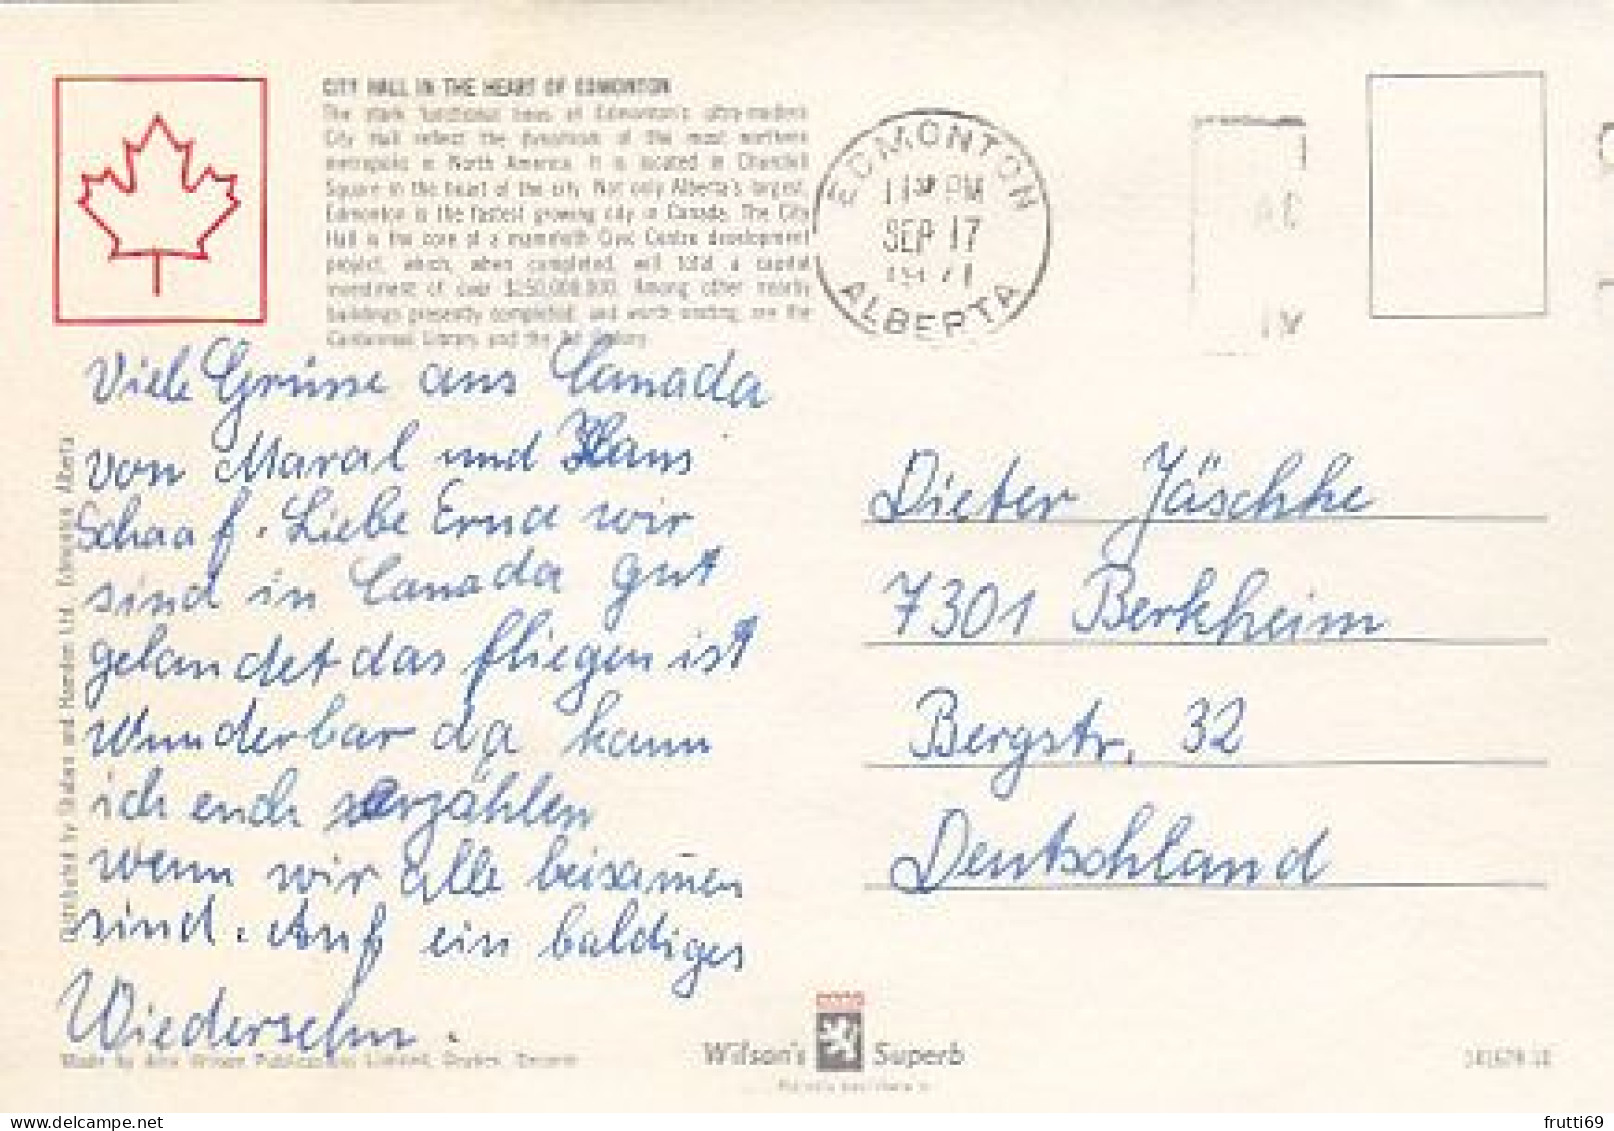 CITY HALL IN THE HEART OF EDMONTON
The stark functional lines of Edmonton's ultra-modern
City Hall reflect the dynamism of the most northern
metropolis in North America. It is located in Churchill
Square in the heart of the city. Not only Alberta's largest,
Edmonton is the fastest growing city in Canada. The City
Hall is the core of a mammoth Civic Centre development
project, which, when completed, will total a capital
investment of over $250,000,000. Among other nearby
buildings presently completed, and worth visiting, are the
Centennial Library and the Art Gallery.
EDMONTON
11 PM
SEP 17
1971
ALBERTA
Viele Grüsse aus Canada
von Maral und Hans
Schaaf. Liebe Erna wir
sind in Canada gut
gelandet das fliegen ist
Wunderbar da kann
ich euch erzählen
wenn wir alle beisam̄en
sind. Auf ein baldiges
Wiedersehn.
Dieter Jäschke
7301 Berkheim
Bergstr. 32
Deutschland
Distributed by Shaban and Ltd., Edmonton, Alberta
Made by Alex Wilson Publications Limited, Dryden, Ontario
Wilson's Superb
delcampe.net
frutti69